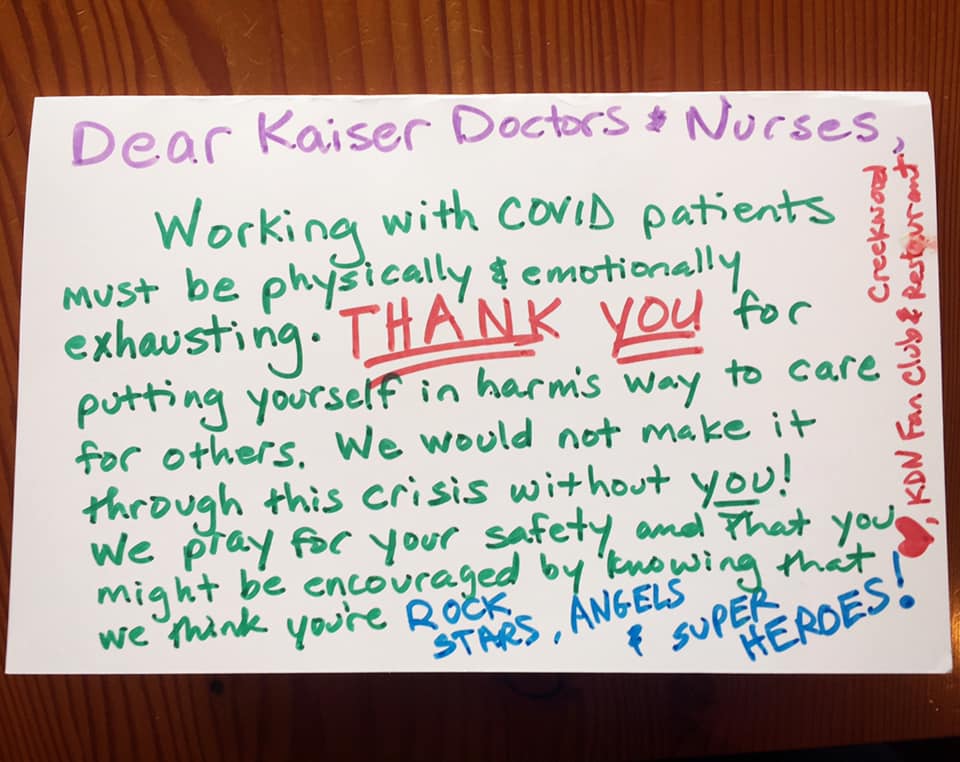 Dear Kaiser Doctors & Nurses,
Working with COVID patients
must be physically & emotionally
exhausting. THANK YOU for
putting yourself in harm's way to care
for others. We would not make it
through this crisis without you!
We pray for your safety and that you
might be encouraged by knowing that
we think you're ROCK
STARS, ANGELS
& SUPER
HEROES!
♥, KDN Fan Club & Creekwood
Restaurant